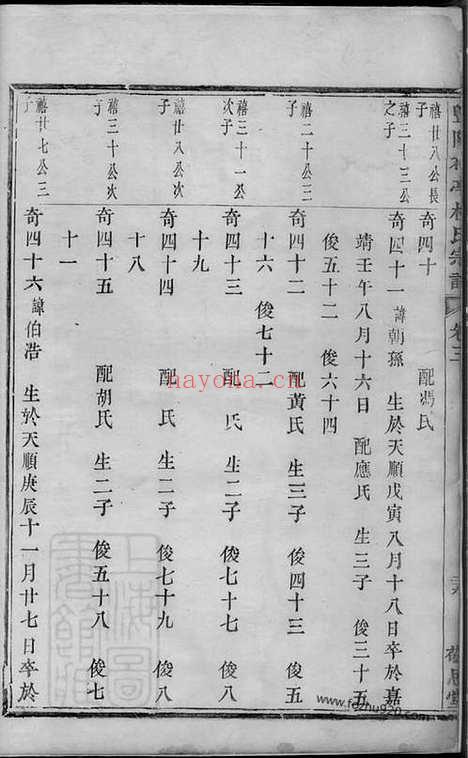 氏宗譜 卷三
禧廿八公長子
奇四十 配馮氏
禧三十三公之子
奇四十一 諱朝孫 生於天順戊寅八月十八日卒於嘉
靖壬午八月十六日 配應氏 生三子 俊三十五
俊五十二 俊六十四
禧二十公三子
奇四十二 配黃氏 生三子 俊四十三 俊五
十六 俊七十二
禧三十一公次子
奇四十三 配 氏 生二子 俊七十七 俊八
十九
禧廿八公次子
奇四十四 配 氏 生二子 俊七十九 俊八
十八
禧三十公次子
奇四十五 配胡氏 生二子 俊五十八 俊七
十一
禧廿七公三子
奇四十六 諱伯浩 生於天順庚辰十一月廿七日卒於
nayona.cn
上海圖書館藏